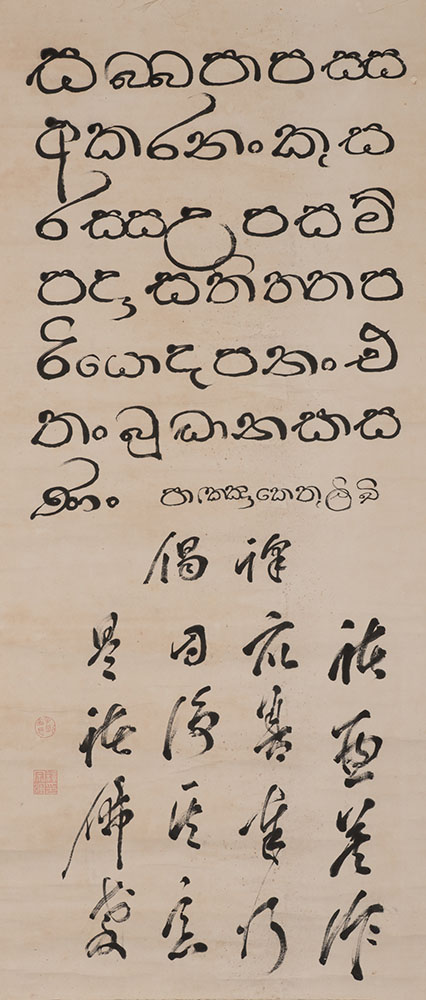 සබබපාපසස
අකරනං කුස
රසසඋපසම්
පදා සතිතතප
රියොදපනං එ
තං බුධානසාස
ණං පාඤඤාකෙතුලිඛි
譯偈
諸惡莫作
衆善奉行
自浄其意
是諸佛教